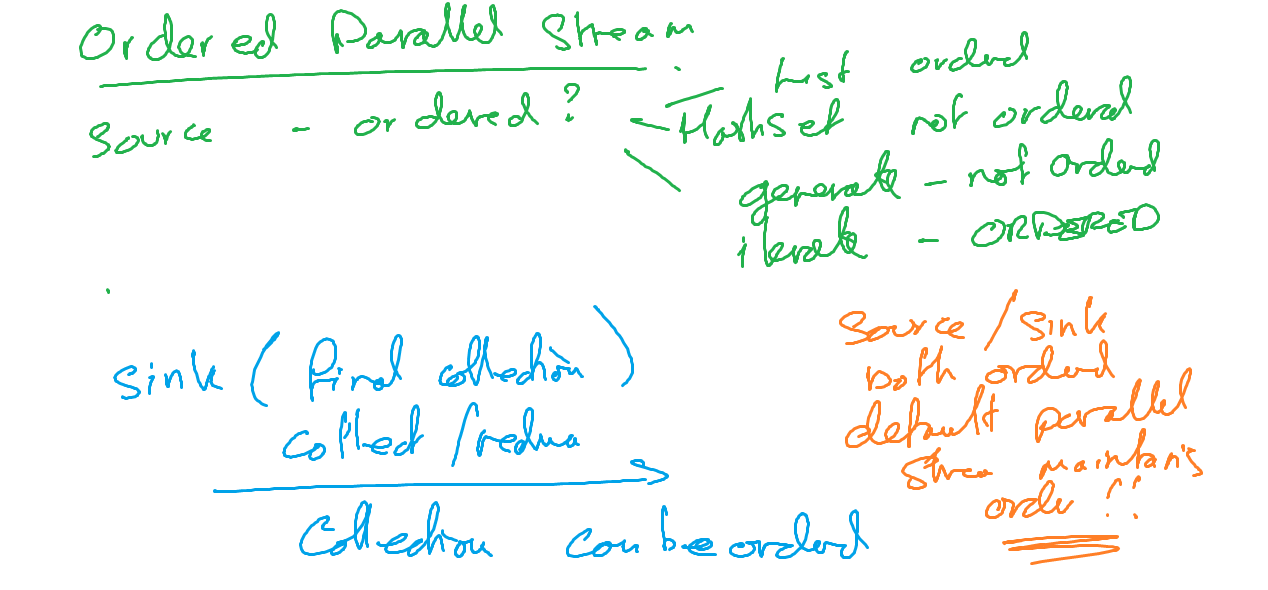 Ordered Parallel Stream
Source - ordered?
List ordered
HashSet not ordered
generate - not ordered
iterate - ORDERED
Sink (final collection)
collect / reduce
Collection can be ordered
Source / Sink
both ordered
default parallel
Stream maintains
order !!